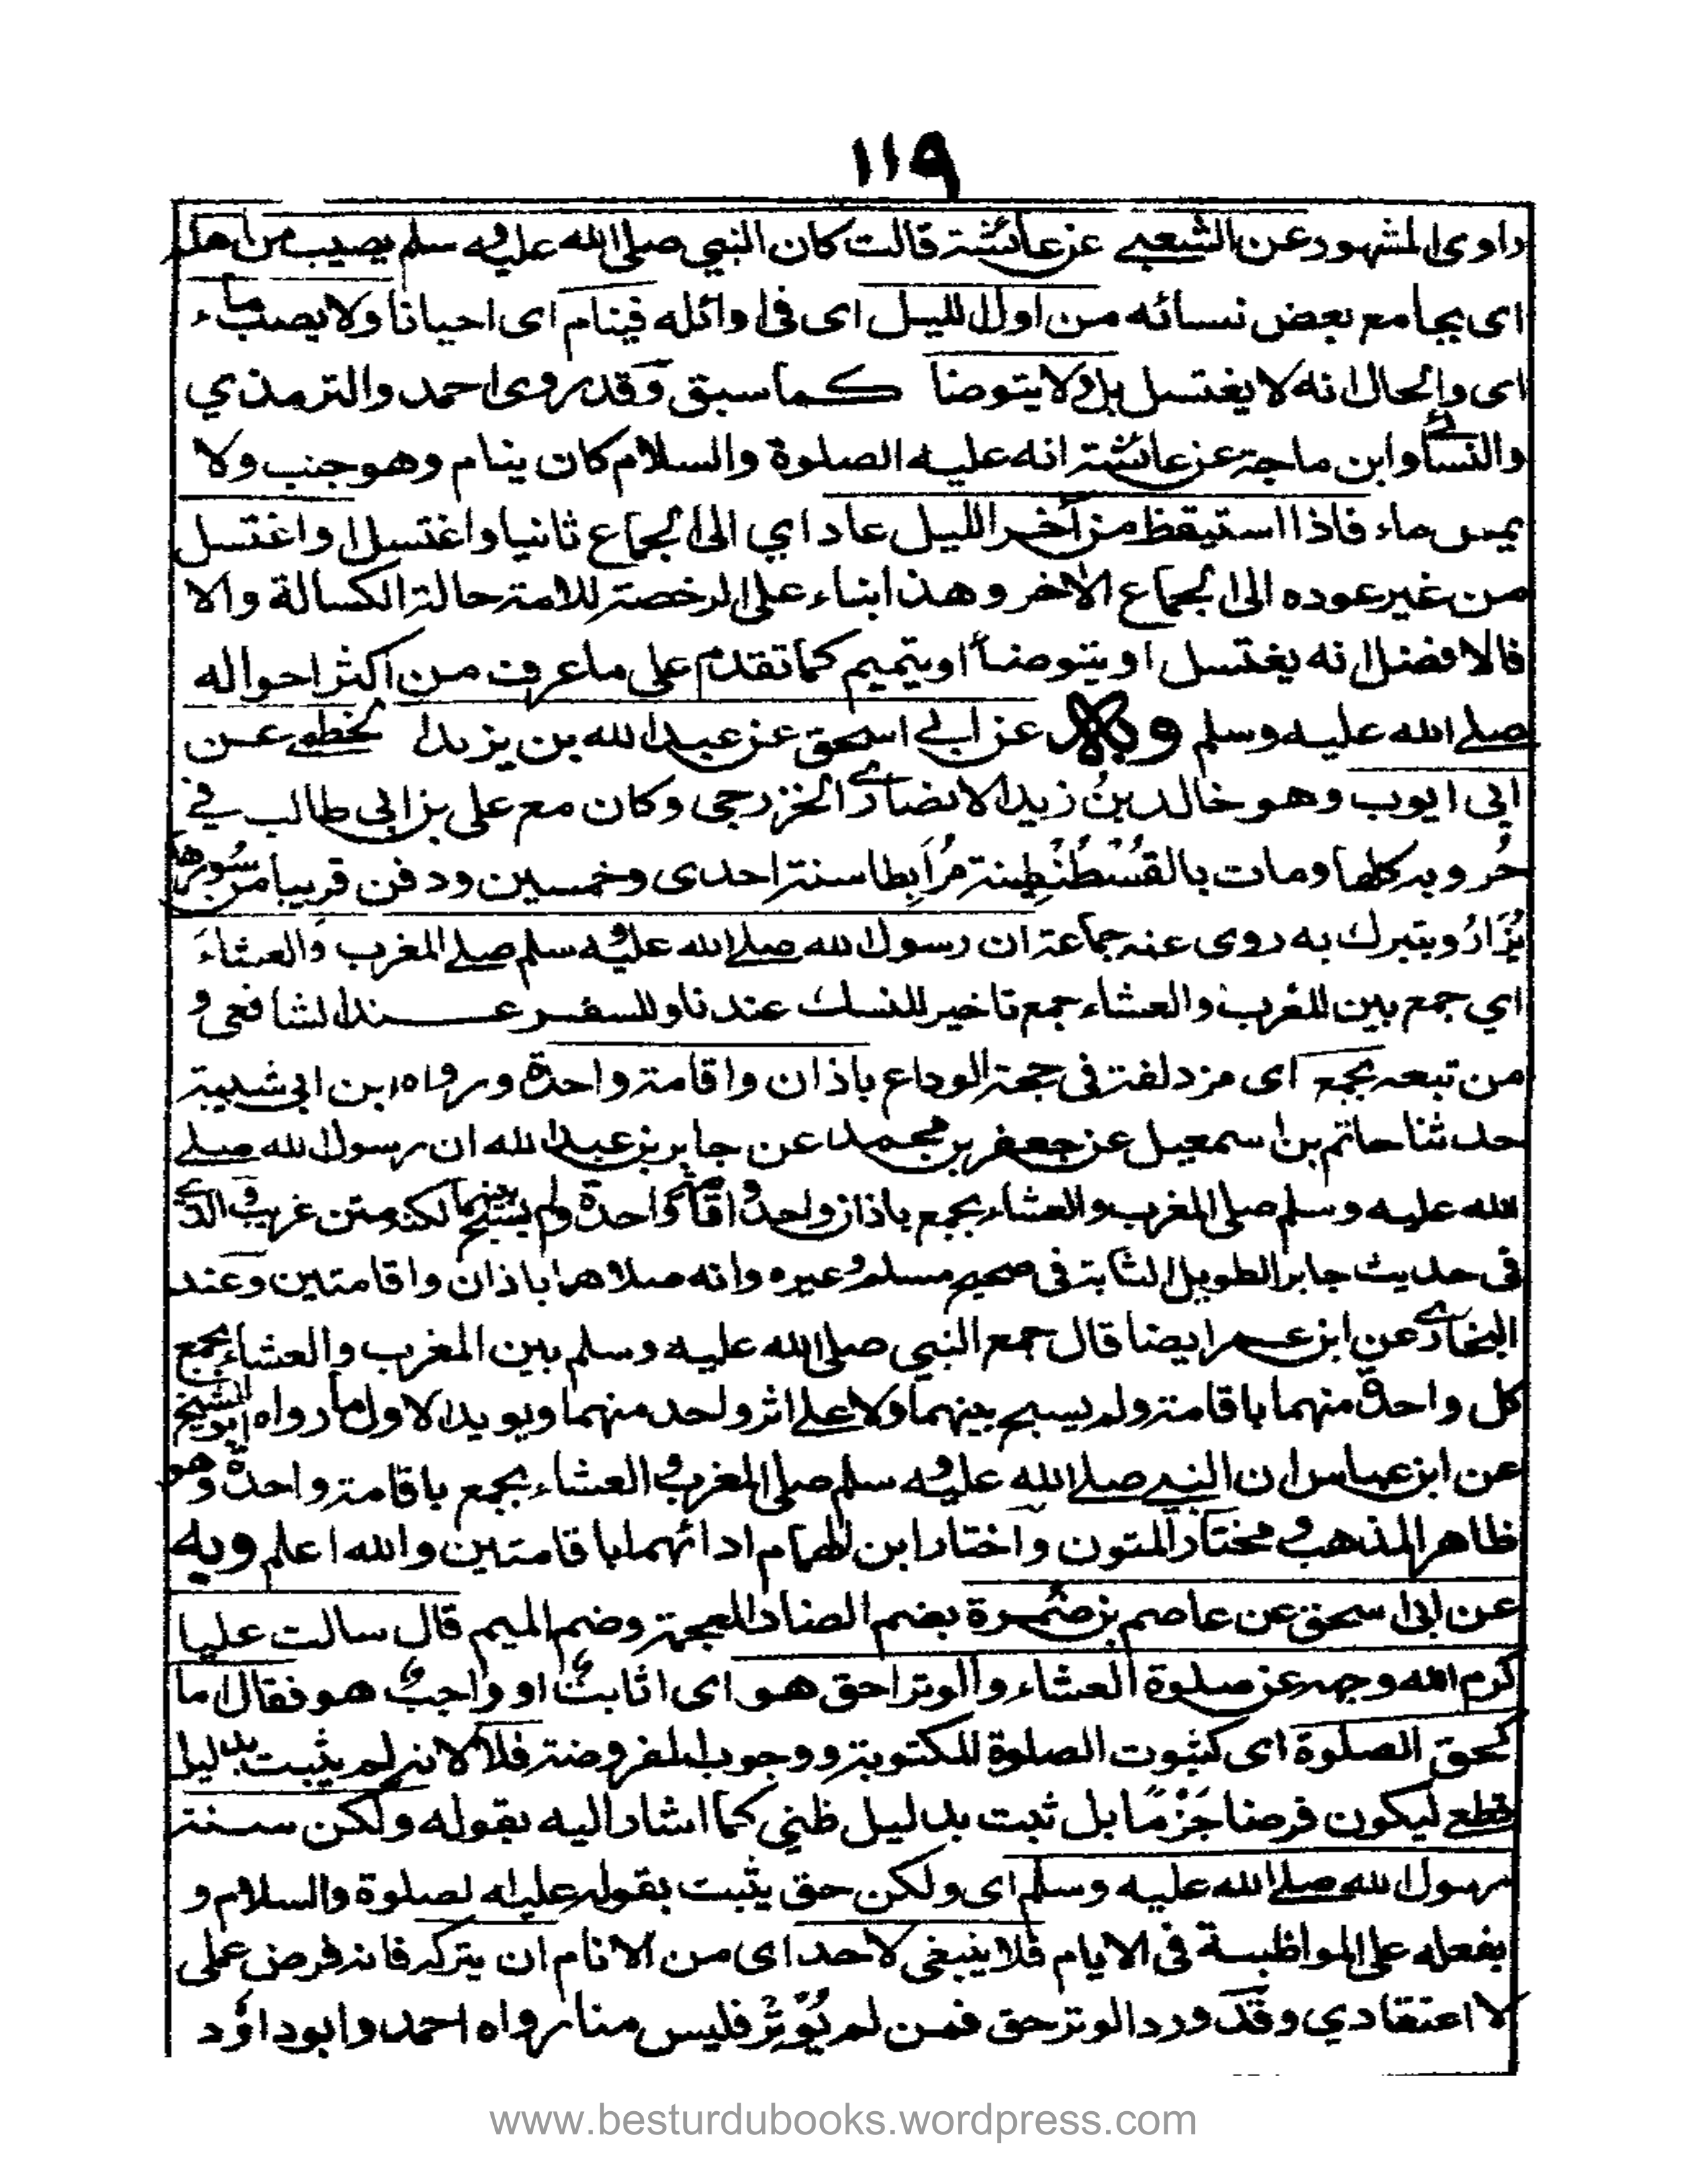 ١١٩
راوى المشهور عن الشعبے عن عائشة قالت كان النبي صلى الله عليه وسلم يصيب من اهله
اى يجامع بعض نسائه من اول الليل اى فى اوائله فينام اى احيانا ولا يصيب ماء
اى والحال انه لا يغتسل بل ولا يتوضأ كما سبق وقد روى احمد والترمذي
والنسائے وابن ماجة عن عائشة انه عليه الصلوة والسلام كان ينام وهو جنب ولا
يمس ماء فاذا استيقظ من آخر الليل عاد اي الى الجماع ثانيا واغتسل او اغتسل
من غير عوده الى الجماع الآخر وهذا بناء على الرخصة للامة حالة الكسالة والا
فالافضل انه يغتسل او يتوضأ او يتميم كما تقدم على ما عرف من اكثر احواله
صلے الله عليه وسلم وبه عن ابے اسحق عن عبد الله بن يزيد الخطمے عن
ابى ايوب وهو خالد بن زيد الانصارے الخزرجى وكان مع على بن ابى طالب فے
حُروبه كلها ومات بالقُسْطُنْطِينة مُرَابِطا سنة احدى وخمسين ودفن قريبا من سُورها
يُزَارُ ويتبرك به روى عنه جماعة ان رسول الله صلے الله عليه وسلم صلے المغرب والعشاءَ
اي جمع بين المغرب والعشاء جمع تاخير للنسك عندنا وللسفر عند الشافعى و
من تبعه بجمع اى مزدلفة فى حجة الوداع باذان واقامة واحدة ورواه ابن ابى شيبة
حدثنا حاتم بن اسمعيل عن جعفر بن محمد عن جابر بن عبد الله ان رسول الله صلے
الله عليه وسلم صلى المغرب والعشاء بجمع باذان واحد واقامة واحدة ولم يسبح بينهما لكنه متن غريب والذے
فى حديث جابر الطويل الثابت فى صحيح مسلم وغيره وانه صلاهما باذان واقامتين وعند
البخارے عن ابن عمر ايضا قال جمع النبي صلى الله عليه وسلم بين المغرب والعشاء بجمع
كل واحدة منهما باقامة ولم يسبح بينهما ولا علے اثر واحد منهما ويويد الاول ما رواه ابو الشيخ
عن ابن عباس ان النبے صلے الله عليه وسلم صلى المغرب والعشاء بجمع باقامة واحدة وهو
ظاهر المذهب ومختار المتون واختار ابن الهمام ادائهما باقامتين والله اعلم وبه
عن ابى اسحق عن عاصم بن ضمرة بضم الضاد المعجمة وضم الميم قال سالت عليا
كرم الله وجهه عن صلوة العشاء والوتر احق هو اى اثابت او واجب هو فقال اما
كحق الصلوة اى كثبوت الصلوة المكتوبة ووجوب المفروضة فلا لانه لم يثبت بدليل
قطعے ليكون فرضا جَزْمًا بل ثبت بدليل ظني كما اشار اليه بقوله ولكن سنة
رسول الله صلے الله عليه وسلم اى ولكن حق يثبت بقوله عليه الصلوة والسلام و
بفعله على المواظبة فى الايام فلا ينبغى لاحد اى من الانام ان يتركه فانه فرض عملى
لا اعتقادي وقد ورد الوتر حق فمن لم يُوْتِرْ فليس منا رواه احمد وابو داؤد
www.besturdubooks.wordpress.com